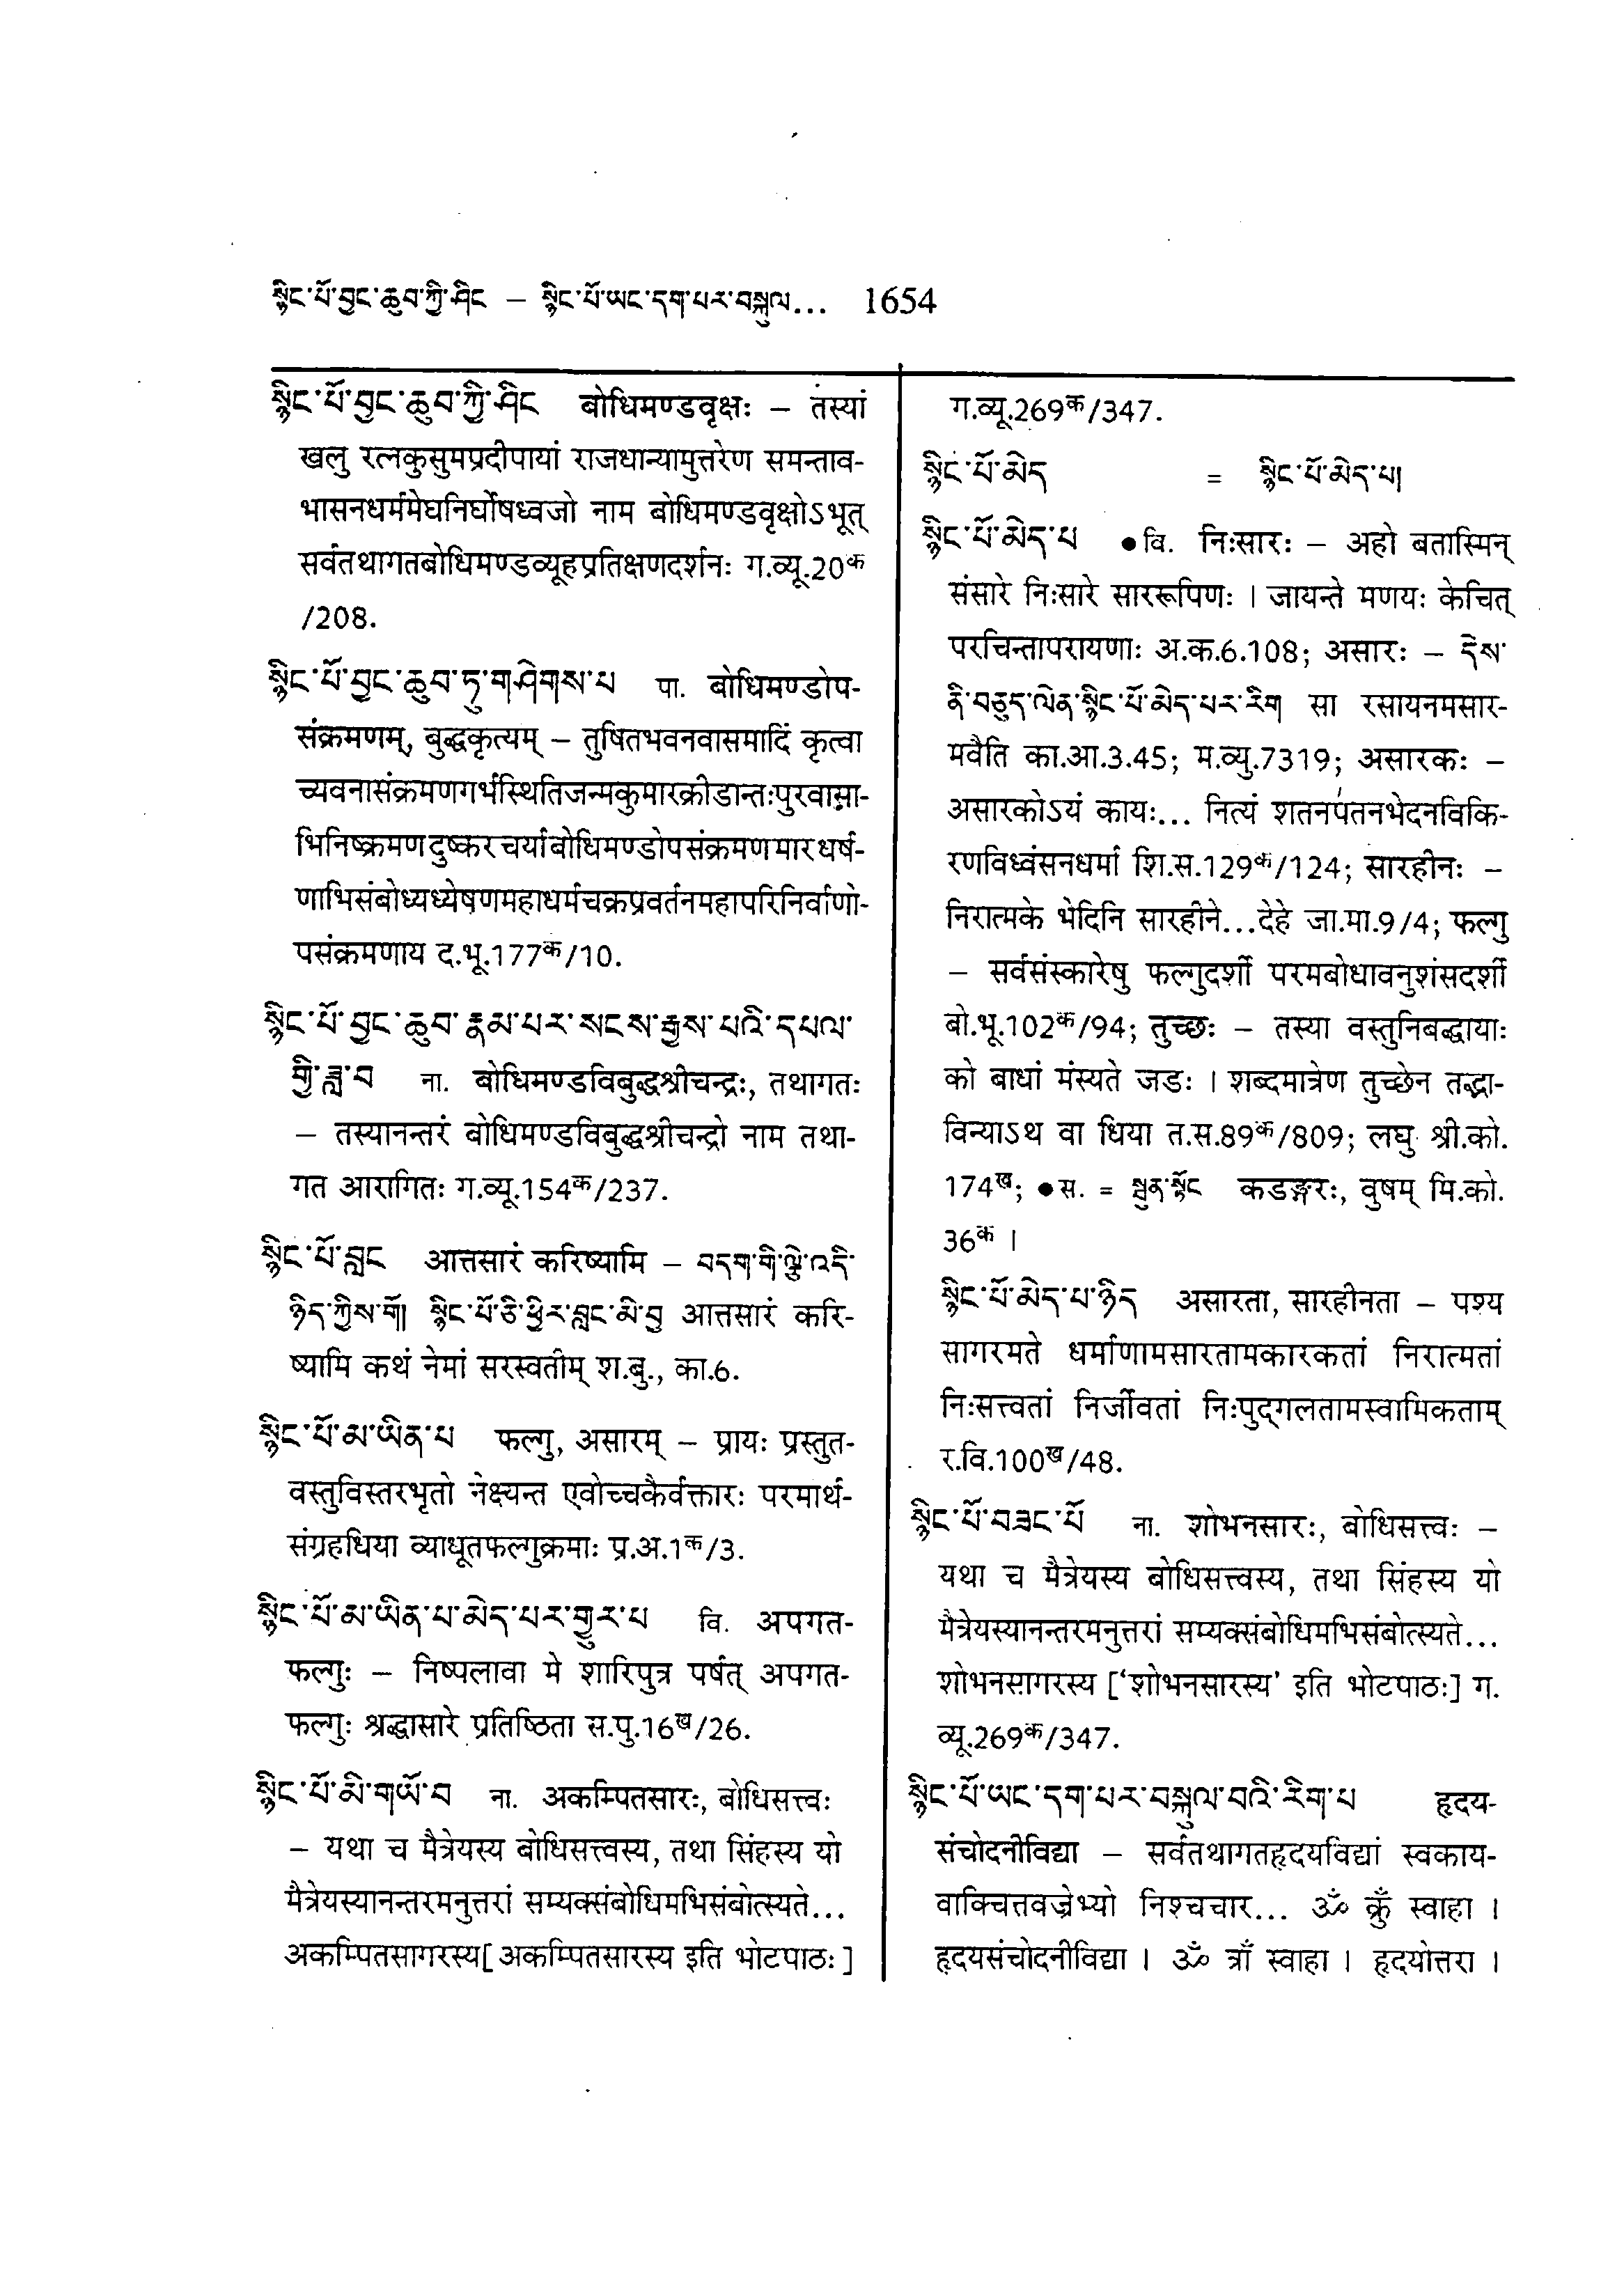 སྙིང་པོ་བྱང་ཆུབ་ཀྱི་ཤིང – སྙིང་པོ་ཡང་དག་པར་བསྐུལ... 1654
སྙིང་པོ་བྱང་ཆུབ་ཀྱི་ཤིང बोधिमण्डवृक्षः – तस्यां
खलु रत्नकुसुमप्रदीपायां राजधान्यामुत्तरेण समन्ताव-
भासनधर्ममेघनिर्घोषध्वजो नाम बोधिमण्डवृक्षोऽभूत्
सर्वतथागतबोधिमण्डव्यूहप्रतिक्षणदर्शनः ग.व्यू.20क
/208.
སྙིང་པོ་བྱང་ཆུབ་ཏུ་གཤེགས་པ पा. बोधिमण्डोप-
संक्रमणम्, बुद्धकृत्यम् – तुषितभवनवासमादिं कृत्वा
च्यवनासंक्रमणगर्भस्थितिजन्मकुमारक्रीडान्तःपुरवासा-
भिनिष्क्रमणदुष्करचर्याबोधिमण्डोपसंक्रमणमारधर्ष-
णाभिसंबोध्यध्येषणमहाधर्मचक्रप्रवर्तनमहापरिनिर्वाणो-
पसंक्रमणाय द.भू.177क/10.
སྙིང་པོ་བྱང་ཆུབ་རྣམ་པར་སངས་རྒྱས་པའི་དཔལ་
གྱི་ཟླ་བ ना. बोधिमण्डविबुद्धश्रीचन्द्रः, तथागतः
– तस्यानन्तरं बोधिमण्डविबुद्धश्रीचन्द्रो नाम तथा-
गत आरागितः ग.व्यू.154क/237.
སྙིང་པོ་བླང आत्तसारं करिष्यामि – བདག་གི་ལྕེ་འདི་
ཉིད་ཀྱིས་གོ། སྙིང་པོ་ཅི་ཕྱིར་བླང་མི་བྱ आत्तसारं करि-
ष्यामि कथं नेमां सरस्वतीम् श.बु., का.6.
སྙིང་པོ་མ་ཡིན་པ फल्गु, असारम् – प्रायः प्रस्तुत-
वस्तुविस्तरभृतो नेक्ष्यन्त एवोच्चकैर्वक्तारः परमार्थ-
संग्रहधिया व्याधूतफल्गुक्रमाः प्र.अ.1क/3.
སྙིང་པོ་མ་ཡིན་པ་མེད་པར་གྱུར་པ वि. अपगत-
फल्गुः – निष्पलावा मे शारिपुत्र पर्षत् अपगत-
फल्गुः श्रद्धासारे प्रतिष्ठिता स.पु.16ख/26.
སྙིང་པོ་མི་གཡོ་བ ना. अकम्पितसारः, बोधिसत्त्वः
– यथा च मैत्रेयस्य बोधिसत्त्वस्य, तथा सिंहस्य यो
मैत्रेयस्यानन्तरमनुत्तरां सम्यक्संबोधिमभिसंबोत्स्यते...
अकम्पितसागरस्य[ अकम्पितसारस्य इति भोटपाठः]
ग.व्यू.269क/347.
སྙིང་པོ་མེད = སྙིང་པོ་མེད་པ།
སྙིང་པོ་མེད་པ ●वि. निःसारः – अहो बतास्मिन्
संसारे निःसारे साररूपिणः । जायन्ते मणयः केचित्
परचिन्तापरायणाः अ.क.6.108; असारः – དེས་
ནི་བཅུད་ལེན་སྙིང་པོ་མེད་པར་རིག सा रसायनमसार-
मवैति का.आ.3.45; म.व्यु.7319; असारकः –
असारकोऽयं कायः... नित्यं शतनपतनभेदनविकि-
रणविध्वंसनधर्मा शि.स.129क/124; सारहीनः –
निरात्मके भेदिनि सारहीने...देहे जा.मा.9/4; फल्गु
– सर्वसंस्कारेषु फल्गुदर्शी परमबोधावनुशंसदर्शी
बो.भू.102क/94; तुच्छः – तस्या वस्तुनिबद्धायाः
को बाधां मंस्यते जडः । शब्दमात्रेण तुच्छेन तद्भा-
विन्याऽथ वा धिया त.स.89क/809; लघु श्री.को.
174ख; ●स. = སྦུན་སྟོང कडङ्गरः, वुषम् मि.को.
36क ।
སྙིང་པོ་མེད་པ་ཉིད असारता, सारहीनता – पश्य
सागरमते धर्माणामसारतामकारकतां निरात्मतां
निःसत्त्वतां निर्जीवतां निःपुद्गलतामस्वामिकताम्
र.वि.100ख/48.
སྙིང་པོ་བཟང་པོ ना. शोभनसारः, बोधिसत्त्वः –
यथा च मैत्रेयस्य बोधिसत्त्वस्य, तथा सिंहस्य यो
मैत्रेयस्यानन्तरमनुत्तरां सम्यक्संबोधिमभिसंबोत्स्यते...
शोभनसागरस्य [‘शोभनसारस्य’ इति भोटपाठः] ग.
व्यू.269क/347.
སྙིང་པོ་ཡང་དག་པར་བསྐུལ་བའི་རིག་པ हृदय-
संचोदनीविद्या – सर्वतथागतहृदयविद्यां स्वकाय-
वाक्चित्तवज्रेभ्यो निश्चचार... ॐ क्रुँ स्वाहा ।
हृदयसंचोदनीविद्या । ॐ त्राँ स्वाहा । हृदयोत्तरा ।